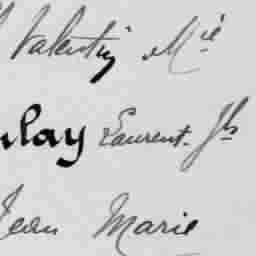 Valentin Mie
lay Laurent. Jh
Jean Marie